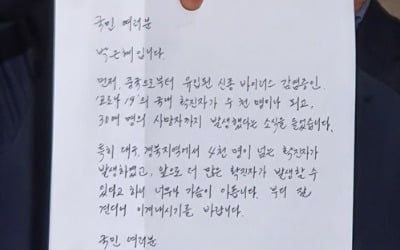 국민 여러분
박근혜입니다.
먼저, 중국으로부터 유입된 신종 바이러스 감염증인,
'코로나 19'의 국내 확진자가 수 천 명이나 되고,
30여 명의 사망자까지 발생했다는 소식을 들었습니다.
특히 대구, 경북지역에서 4천 명이 넘는 확진자가
발생하였고, 앞으로 더 많은 확진자가 발생할 수
있다고 하니 너무나 가슴이 아픕니다. 부디 잘
견디어 이겨내시기를 바랍니다.
국민 여러분